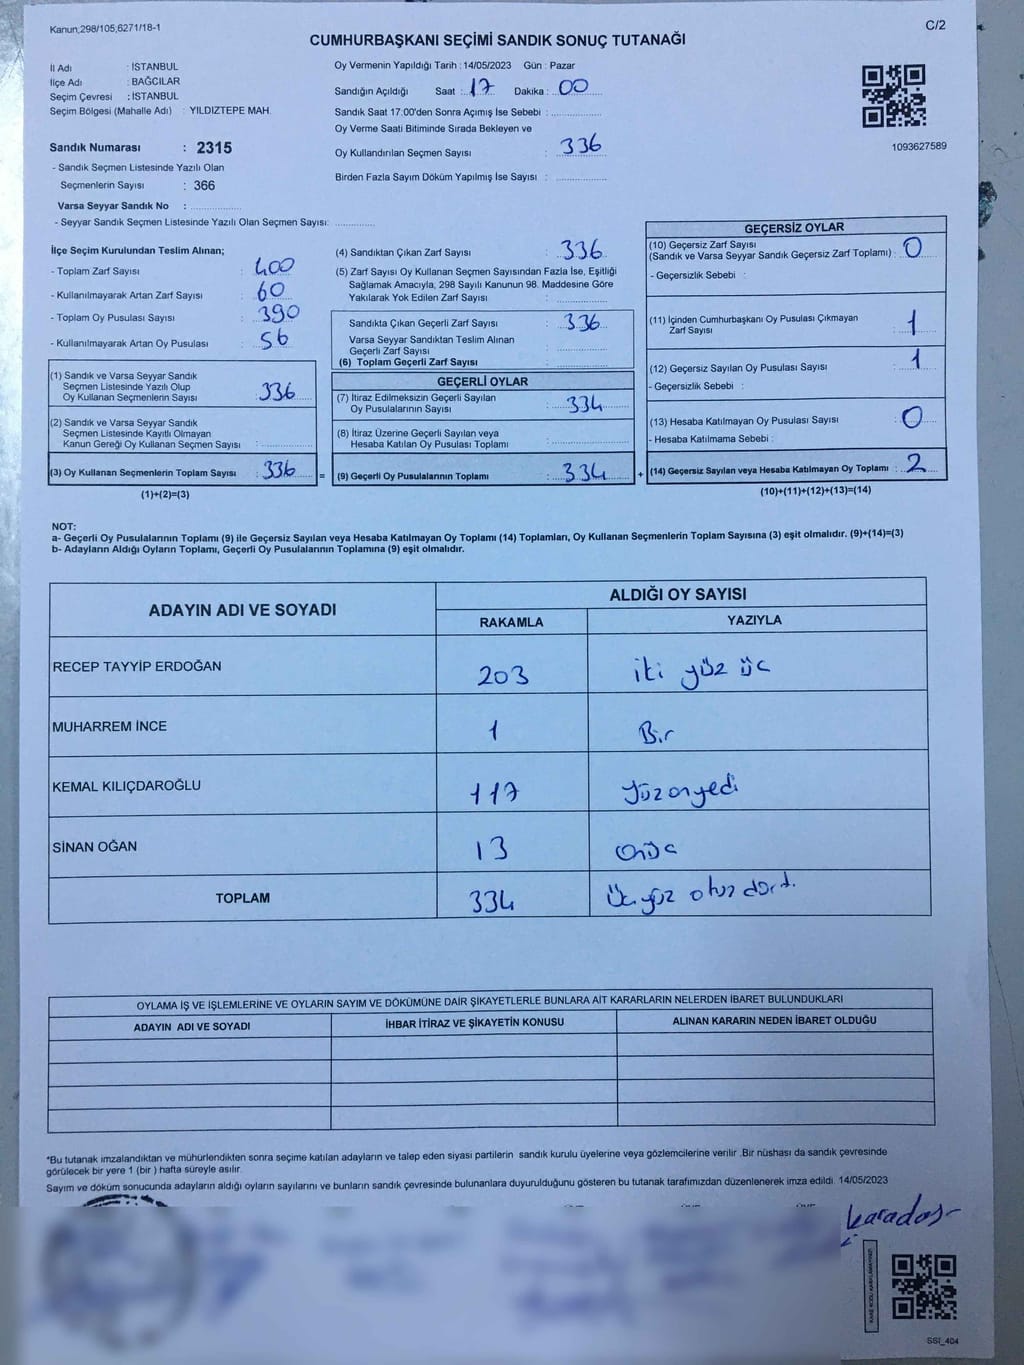 Kanun;298/105,6271/18-1
C/2
CUMHURBAŞKANI SEÇİMİ SANDIK SONUÇ TUTANAĞI
İl Adı : İSTANBUL
İlçe Adı : BAĞCILAR
Seçim Çevresi : İSTANBUL
Seçim Bölgesi (Mahalle Adı) : YILDIZTEPE MAH.
Sandık Numarası : 2315
- Sandık Seçmen Listesinde Yazılı Olan
Seçmenlerin Sayısı : 366
Varsa Seyyar Sandık No : ..................
- Seyyar Sandık Seçmen Listesinde Yazılı Olan Seçmen Sayısı: ..............
Oy Vermenin Yapıldığı Tarih : 14/05/2023 Gün : Pazar
Sandığın Açıldığı Saat : 17 Dakika : 00
Sandık Saat 17:00'den Sonra Açımış İse Sebebi : ..................
Oy Verme Saati Bitiminde Sırada Bekleyen ve
Oy Kullandırılan Seçmen Sayısı : 336
Birden Fazla Sayım Döküm Yapılmış İse Sayısı : ..................
1093627589
İlçe Seçim Kurulundan Teslim Alınan;
- Toplam Zarf Sayısı : 400
- Kullanılmayarak Artan Zarf Sayısı : 60
- Toplam Oy Pusulası Sayısı : 390
- Kullanılmayarak Artan Oy Pusulası : 56
(1) Sandık ve Varsa Seyyar Sandık
Seçmen Listesinde Yazılı Olup
Oy Kullanan Seçmenlerin Sayısı : 336
(2) Sandık ve Varsa Seyyar Sandık
Seçmen Listesinde Kayıtlı Olmayan
Kanun Gereği Oy Kullanan Seçmen Sayısı : ..................
(3) Oy Kullanan Seçmenlerin Toplam Sayısı : 336 =
(1)+(2)=(3)
(4) Sandıktan Çıkan Zarf Sayısı : 336
(5) Zarf Sayısı Oy Kullanan Seçmen Sayısından Fazla İse, Eşitliği
Sağlamak Amacıyla, 298 Sayılı Kanunun 98. Maddesine Göre
Yakılarak Yok Edilen Zarf Sayısı : ..................
Sandıkta Çıkan Geçerli Zarf Sayısı : 336
Varsa Seyyar Sandıktan Teslim Alınan
Geçerli Zarf Sayısı : ..................
(6) Toplam Geçerli Zarf Sayısı : ..................
GEÇERLİ OYLAR
(7) İtiraz Edilmeksizin Geçerli Sayılan
Oy Pusulalarının Sayısı : 334
(8) İtiraz Üzerine Geçerli Sayılan veya
Hesaba Katılan Oy Pusulası Toplamı : ..................
(9) Geçerli Oy Pusulalarının Toplamı : 334 +
GEÇERSİZ OYLAR
(10) Geçersiz Zarf Sayısı
(Sandık ve Varsa Seyyar Sandık Geçersiz Zarf Toplamı) : 0
- Geçersizlik Sebebi :
(11) İçinden Cumhurbaşkanı Oy Pusulası Çıkmayan
Zarf Sayısı : 1
(12) Geçersiz Sayılan Oy Pusulası Sayısı : 1
- Geçersizlik Sebebi :
(13) Hesaba Katılmayan Oy Pusulası Sayısı : 0
- Hesaba Katılmama Sebebi :
(14) Geçersiz Sayılan veya Hesaba Katılmayan Oy Toplamı : 2
(10)+(11)+(12)+(13)=(14)
NOT:
a- Geçerli Oy Pusulalarının Toplamı (9) ile Geçersiz Sayılan veya Hesaba Katılmayan Oy Toplamı (14) Toplamları, Oy Kullanan Seçmenlerin Toplam Sayısına (3) eşit olmalıdır. (9)+(14)=(3)
b- Adayların Aldığı Oyların Toplamı, Geçerli Oy Pusulalarının Toplamına (9) eşit olmalıdır.
ADAYIN ADI VE SOYADI ALDIĞI OY SAYISI
RAKAMLA YAZIYLA
RECEP TAYYİP ERDOĞAN 203 iki yüz üç
MUHARREM İNCE 1 Bir
KEMAL KILIÇDAROĞLU 117 yüzonyedi
SİNAN OĞAN 13 onüç
TOPLAM 334 Üçyüz otuz dört.
OYLAMA İŞ VE İŞLEMLERİNE VE OYLARIN SAYIM VE DÖKÜMÜNE DAİR ŞİKAYETLERLE BUNLARA AİT KARARLARIN NELERDEN İBARET BULUNDUKLARI
ADAYIN ADI VE SOYADI İHBAR İTİRAZ VE ŞİKAYETİN KONUSU ALINAN KARARIN NEDEN İBARET OLDUĞU
*Bu tutanak imzalandıktan ve mühürlendikten sonra seçime katılan adayların ve talep eden siyasi partilerin sandık kurulu üyelerine veya gözlemcilerine verilir .Bir nüshası da sandık çevresinde
görülecek bir yere 1 (bir ) hafta süreyle asılır.
Sayım ve döküm sonucunda adayların aldığı oyların sayılarını ve bunların sandık çevresinde bulunanlara duyurulduğunu gösteren bu tutanak tarafımızdan düzenlenerek imza edildi. 14/05/2023
karadaş
SSI_404